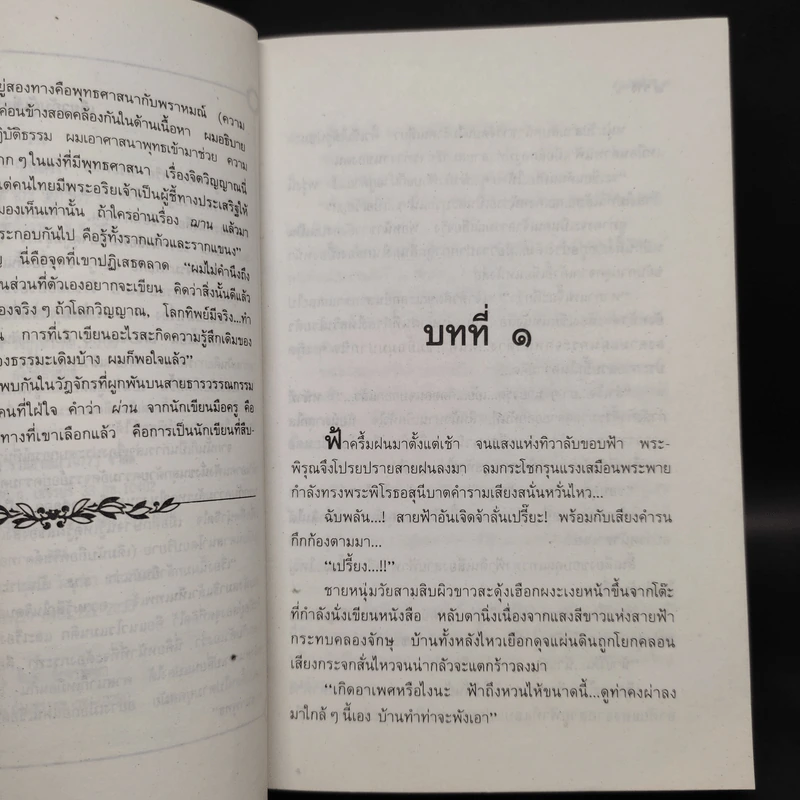 ยู่สองทางคือพุทธศาสนากับพราหมณ์ (ความ
ค่อนข้างสอดคล้องกันในด้านเนื้อหา ผมอธิบาย
ฏิบัติธรรม ผมเอาศาสนาพุทธเข้ามาช่วย ความ
าก ๆ ในแง่ที่มีพุทธศาสนา เรื่องจิตวิญญาณนี่
แต่คนไทยมีพระอริยเจ้าเป็นผู้ชี้ทางประเสริฐให้
มองเห็นเท่านั้น ถ้าใครอ่านเรื่อง ฌาน แล้วมา
ระกอบกันไป คือรู้ทั้งรากแก้วและรากแขนง”
นี่คือจุดที่เขาปฏิเสธตลาด “ผมไม่คำนึงถึง
นส่วนที่ตัวเองอยากจะเขียน คิดว่าสิ่งนั้นดีแล้ว
องจริง ๆ ถ้าโลกวิญญาณ, โลกทิพย์มีจริง...ทำ
การที่เราเขียนอะไรสะกิดความรู้สึกเดิมของ
องธรรมะเดิมบ้าง ผมก็พอใจแล้ว”
พบกันในวัฏจักรที่ผูกพันบนสายธารวรรณกรรม
คนที่ใฝ่ใจ คำว่า ผ่าน จากนักเขียนมือครู คือ
ทางที่เขาเลือกแล้ว คือการเป็นนักเขียนที่สืบ-
บทที่ ๑
ฟ้าครึ้มฝนมาตั้งแต่เช้า จนแสงแห่งทิวาลับขอบฟ้า พระ-
พิรุณจึงโปรยปรายสายฝนลงมา ลมกระโชกรุนแรงเสมือนพระพาย
กำลังทรงพระพิโรธอสุนีบาตคำรามเสียงสนั่นหวั่นไหว...
ฉับพลัน...! สายฟ้าอันเจิดจ้าลั่นเปรี๊ยะ! พร้อมกับเสียงคำรน
กึกก้องตามมา...
“เปรี้ยง...!!”
ชายหนุ่มวัยสามสิบผิวขาวสะดุ้งเฮือกผงะเงยหน้าขึ้นจากโต๊ะ
ที่กำลังนั่งเขียนหนังสือ หลับตานิ่งเนื่องจากแสงสีขาวแห่งสายฟ้า
กระทบคลองจักษุ บ้านทั้งหลังไหวเยือกดุจแผ่นดินถูกโยกคลอน
เสียงกระจกสั่นไหวจนน่ากลัวจะแตกร้าวลงมา
“เกิดอาเพศหรือไงนะ ฟ้าถึงหวนไห้ขนาดนี้...ดูท่าคงผ่าลง
มาใกล้ ๆ นี้เอง บ้านทำท่าจะพังเอา”